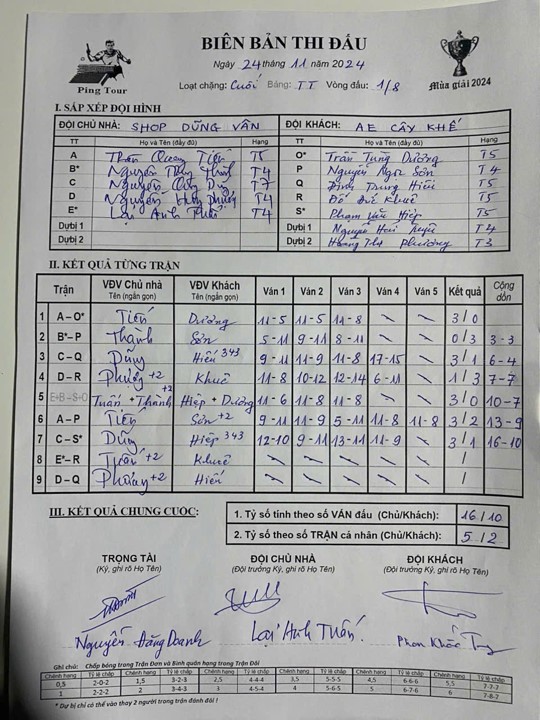 BIÊN BẢN THI ĐẤU
Ngày 24 tháng 11 năm 2024
Loại chặng: Cuối Bảng: TT Vòng đấu: 1/8
Ping Tour
Mùa giải 2024
I. SẮP XẾP ĐỘI HÌNH
ĐỘI CHỦ NHÀ: SHOP DŨNG VÂN ĐỘI KHÁCH: AE CÂY KHẾ
TT Họ và Tên (đầy đủ) Hạng TT Họ và Tên (đầy đủ) Hạng
A Trần Quang Tiến T5 O* Trần Tùng Dương T5
B* Nguyễn Thành T4 P Nguyễn Ngọc Sơn T4
C Nguyễn Dũng T7 Q Đinh Trung Hiếu T5
D Nguyễn Phương T4 R Khuê T5
E* Lại Anh Tuấn T4 S* Phạm Văn Hiệp T5
Dự bị 1 Dự bị 1 Nguyễn T4
Dự bị 2 Dự bị 2 Hoàng Phương T3
II. KẾT QUẢ TỪNG TRẬN
Trận VĐV Chủ nhà Tên (ngắn gọn) VĐV Khách Tên (ngắn gọn) Ván 1 Ván 2 Ván 3 Ván 4 Ván 5 Kết quả Cộng dồn
1 A – O* Tiến Dương 11-5 11-5 11-8 \ \ 3/0
2 B* – P Thành Sơn 5-11 9-11 8-11 \ \ 0/3 3-3
3 C – Q Dũng Hiếu 343 9-11 11-9 11-8 17-15 \ 3/1 6-4
4 D – R Phương +2 Khuê 11-8 10-12 12-14 6-11 \ 1/3 7-7
5 E+B – S+O Tuấn + Thành +2 Hiệp + Dương 11-6 11-8 11-8 \ \ 3/0 10-7
6 A – P Tiến Sơn +2 9-11 11-9 5-11 11-8 11-8 3/2 13-9
7 C – S* Dũng Hiệp 343 12-10 9-11 13-11 11-9 \ 3/1 16-10
8 E* – R Tuấn +2 Khuê \ \ \ \ \ /
9 D – Q Phương +2 Hiếu \ \ \ \ \ /
III. KẾT QUẢ CHUNG CUỘC:
1. Tỷ số tính theo số VÁN đấu (Chủ/Khách): 16/10
2. Tỷ số theo số TRẬN cá nhân (Chủ/Khách): 5/2
TRỌNG TÀI ĐỘI CHỦ NHÀ ĐỘI KHÁCH
(Ký, ghi rõ Họ Tên) (Đội trưởng Ký, ghi rõ Họ Tên) (Đội trưởng Ký, ghi rõ Họ Tên)
Nguyễn Đăng Doanh Lại Anh Tuấn. Phan Khắc
Ghi chú: Chấp bóng trong Trận Đơn và Bình quân hạng trong Trận Đôi
Chênh hạng Tỷ lệ chấp Chênh hạng Tỷ lệ chấp Chênh hạng Tỷ lệ chấp Chênh hạng Tỷ lệ chấp Chênh hạng Tỷ lệ chấp Chênh hạng Tỷ lệ chấp
0,5 2-0-2 1,5 3-2-3 2,5 4-4-4 3,5 5-5-5 4,5 6-6-6 5,5 7-7-7
1 2-2-2 2 3-4-3 3 4-5-4 4 5-6-5 5 6-7-6 6 7-8-7
* Dự bị chỉ có thể vào thay 2 người trong trận đánh đôi !